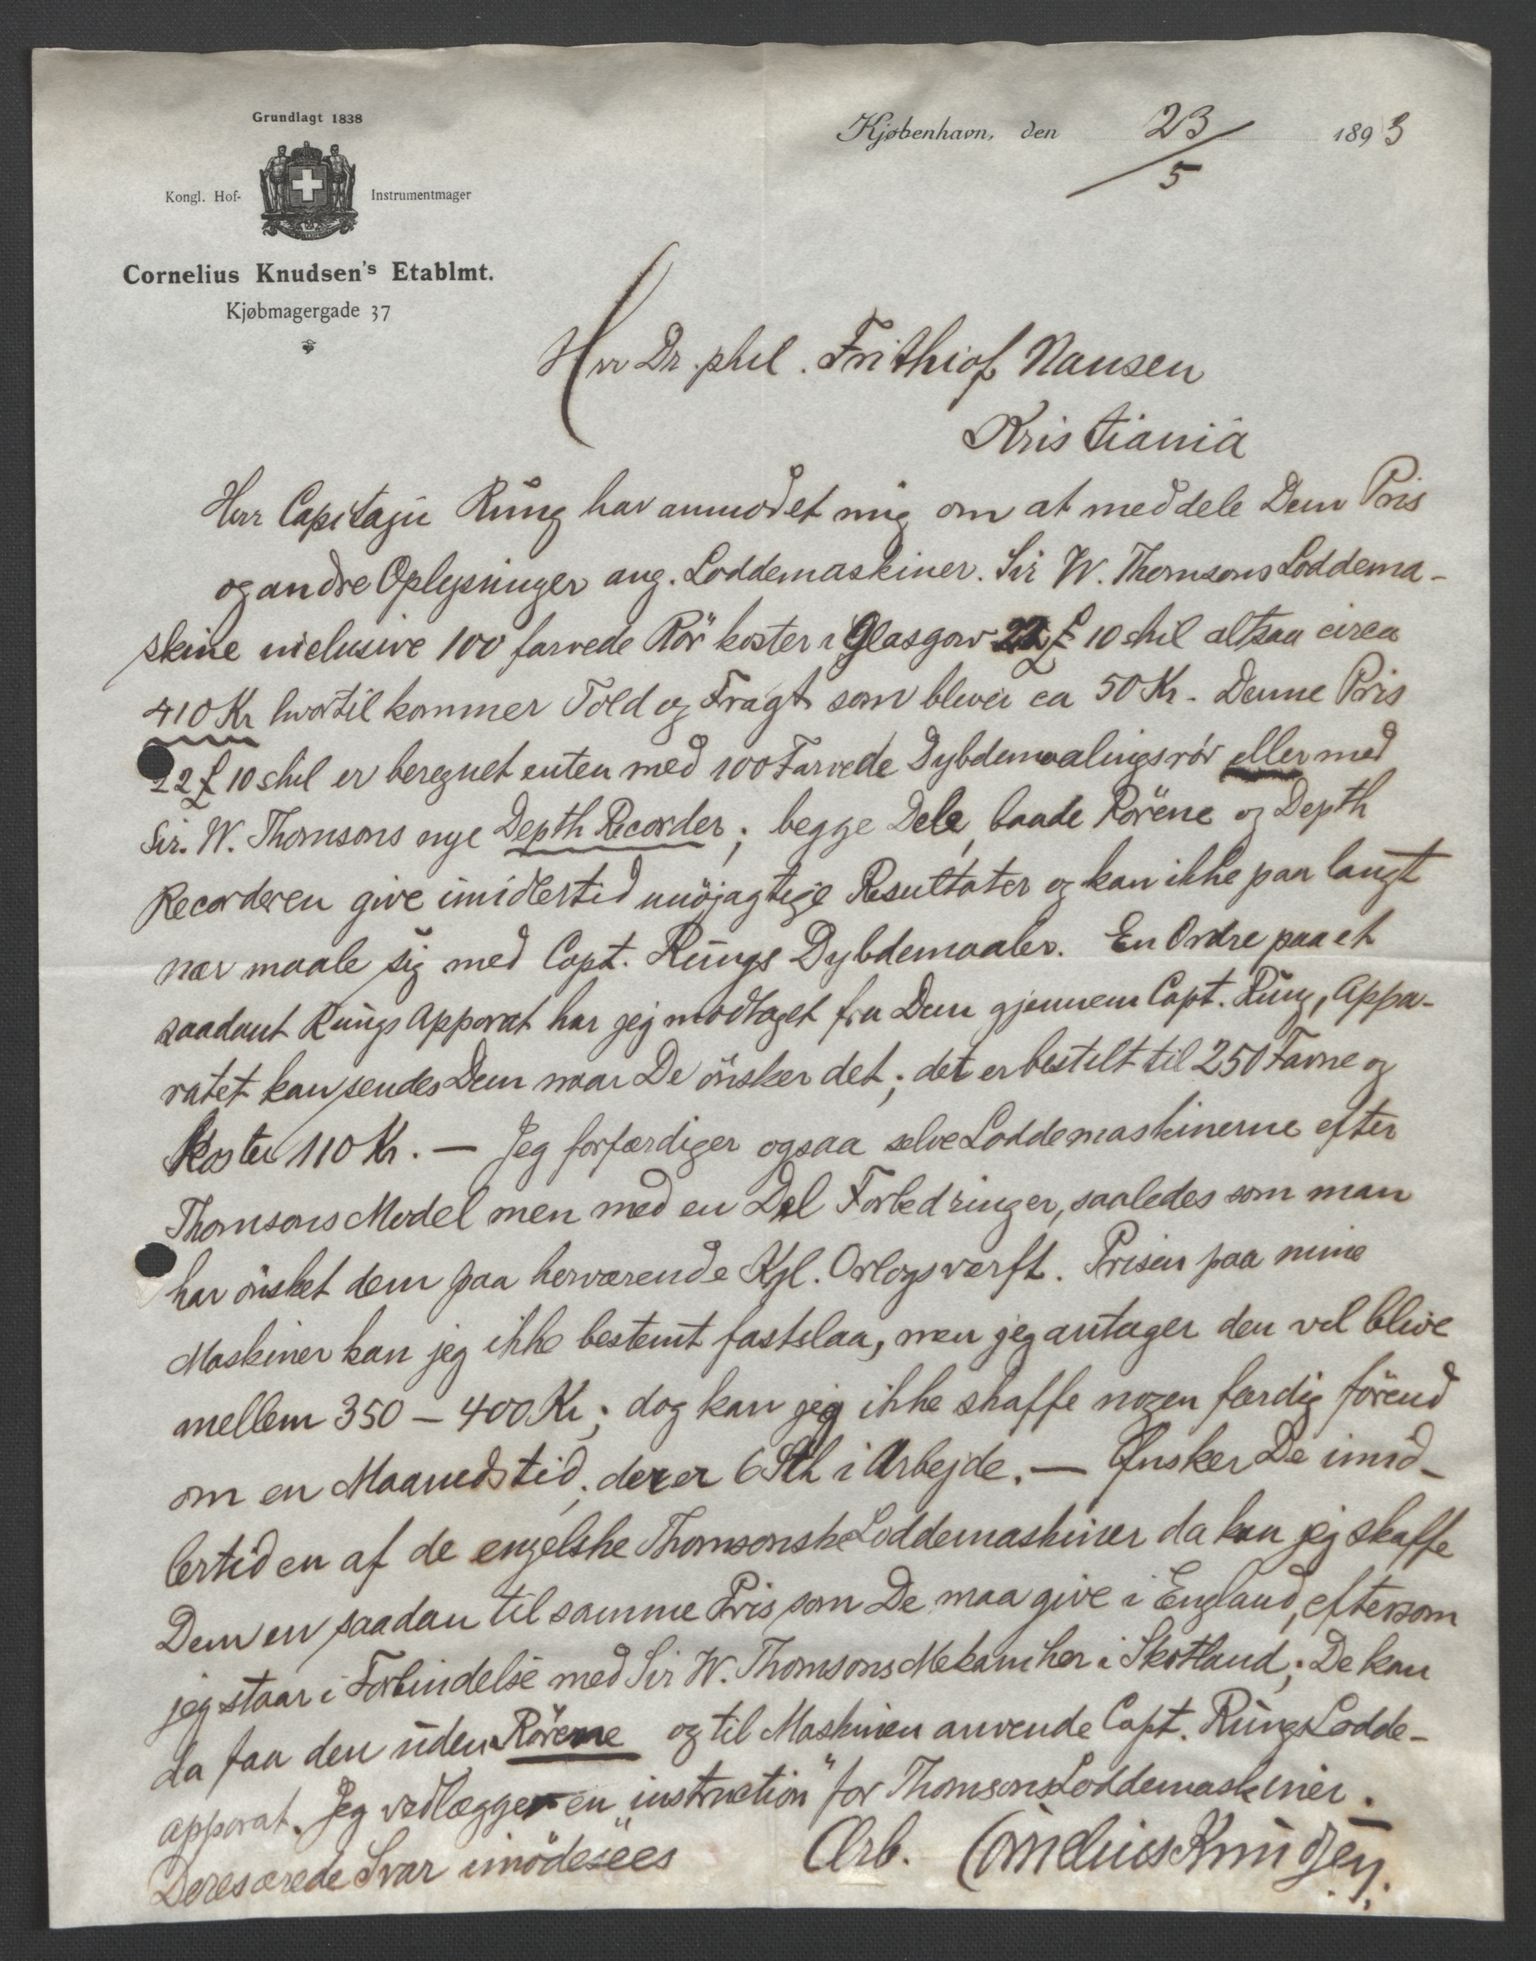 Grundlagt 1838
Kongl. Hof- Instrumentmager
Cornelius Knudsen's Etablmt.
Kjøbmagergade 37
Kjøbenhavn, den 23/5 1893
Herr Dr. phil. Frithiof Nansen
Kristiania
Herr Capitajn Rung har anmodet mig om at meddele Dem Pris
og andre Oplysninger ang. Loddemaskiner. Sir W. Thomsons Loddema-
skine inclusive 100 farvede Rör koster i Glasgow 22 £ 10 shil altsaa circa
410 Kr hvortil kommer Told og Fragt som bliver ca 50 Kr. Denne Pris
22 £ 10 shil er beregnet enten med 100 Farvede Dybdemaalingsrör eller med
Sir. W. Thomsons nye Depth Recorder; begge Dele, baade Rörene og Depth
Recorderen give imidlertid unöjagtige Resultater og kan ikke paa langt
nær maale sig med Capt. Rungs Dybdemaaler. En Ordre paa et
saadant Rungs Apparat har jeg modtaget fra Dem gjennem Capt. Rung, Appa-
ratet kan sendes Dem naar De önsker det; det er bestilt til 250 Favne og
Koster 110 Kr. — Jeg forfærdiger ogsaa selve Loddemaskinerne efter
Thomsons Model men med en Del Forbedringer, saaledes som man
har önsket dem paa herværende Kgl. Orlogsværft. Prisen paa mine
Maskiner kan jeg ikke bestemt fastslaa, men jeg antager den vil blive
mellem 350 – 400 Kr; dog kan jeg ikke skaffe nogen færdig förend
om en Maaneds tid, der er 6 Stk i Arbejde. — Ønsker De imid-
lertid en af de engelske Thomsonske Loddemaskiner da kan jeg skaffe
Dem en saadan til samme Pris som De maa give i England, eftersom
jeg staar i Forbindelse med Sir W. Thomsons Mekaniker i Skotland; De kan
da faa den uden Rörene og til Maskinen anvende Capt. Rungs Lodde-
apparat. Jeg vedlægger en "instruction" for Thomsons Loddemaskiner.
Deres ærede Svar imödesees Ærb. Cornelius Knudsen.